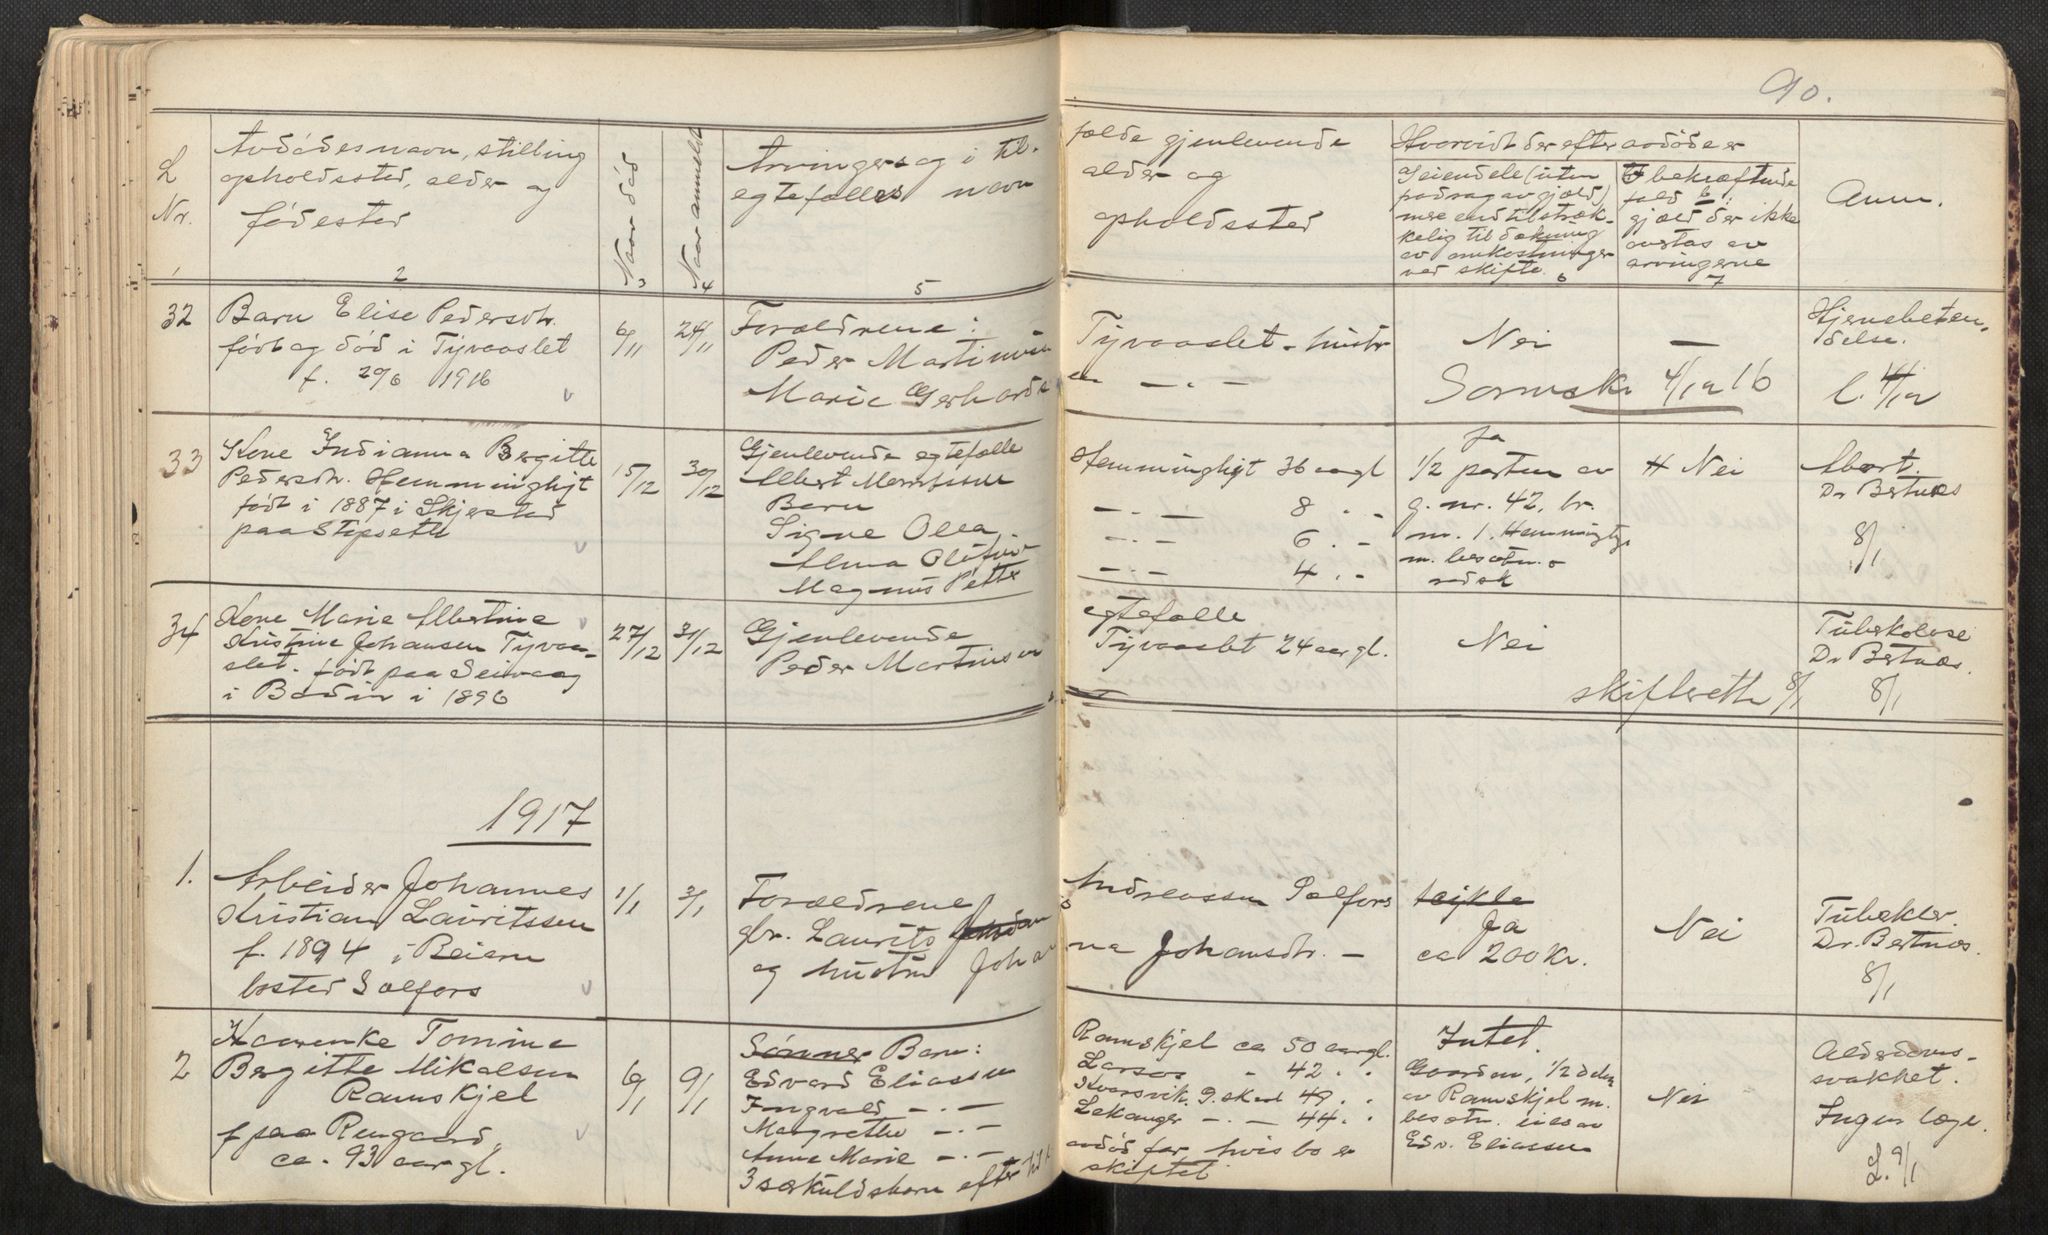 90.
L
Nr.
Avdødes navn, stilling
opholdssted, alder og
fødested
Naar død
Naar anmeldt
Arvingers og i til-
egtefælles navn
fælde gjenlevende
alder og
opholdssted
Hvorvidt der efter avdøde er
Eiendele (uten
fradrag av gjæld)
mere end tilstræk-
kelig til dækning
av omkostninger
ved skifte
I bekræftende
fald 6:
gjæld der ikke
overtas av
arvingerne
Anm.
1 2 3 4 5 6 7
32
Barn Elise Pedersdtr.
født og død i Tyvaaslet
f. 29/6 1916
6/11
24/11
Forældrene:
Peder Martinsen
Marie Gerharda
Tyvaaslet - hustr
en — . —
Nei
Sorensk. 4/12 16
—
Hjernebeten-
delse.
L. 4/12
33
Kone Indianna Bergitte
Pedersdtr. Hemmingligt
født i 1887 i Skjerstad
paa Stipsetli
15/12
30/12
Gjenlevende egtefælle
Albert
Barn
Signe Olea
Alma
Magnus Petter
Hemmingligt 36 aar gl
— . — 8 . -
— . — 6 . -
— . — 4 . -
Ja
1/2 parten av
g. nr. 42, br.
nr. 1. Hemminglig
m. besætn. o
redsk
Nei
Abort.
Dr Bertnæs
8/1
34
Kone Marie Albertine
Kristine Johansen Tyvaa-
slet. født paa Seivaag
i Bodin i 1896
27/12
31/12
Gjenlevende
Peder Martinsen
egtefælle
Tyvaaslet 24 aar gl.
Nei
skifterett 8/1
Tuberkolose
Dr Bertnæs.
8/1
1917
1.
Arbeider Johannes
Kristian Lauritssen
f. 1894 i Beiarn
bosted Sælfors
1/1
3/1
Forældrene
gbr. Laurits
og hustru Johan
Andreassen Sælfors
na Johansdtr. —
Ja
ca 200 Kr.
Nei
Tuberkler.
Dr. Bertnæs
8/1
2
Kaarenke Tomine
Bergitte Mikalsen
Ramskjel
f paa Rengaard,
ca. 93 aar gl.
6/1
9/1
Sønner Barn:
Edvard Eliassen
Ingvald — . —
Margrethe — . —
Anne Marie — . —
3 særkuldsbarn efter
Ramskjel ca 50 aar gl.
Larsos " 42 . .
Kvarsvik. G.skaal 49 . .
Lekanger — . — 44 . .
avdød far, hvis bo er
skiftet
Intet.
Gaarden, 1/2 delen
av Ramskjel m.
besætn. eies av
Edv. Eliassen
Nei
Alderdoms-
svakhet.
Ingen læge.
L. 9/1